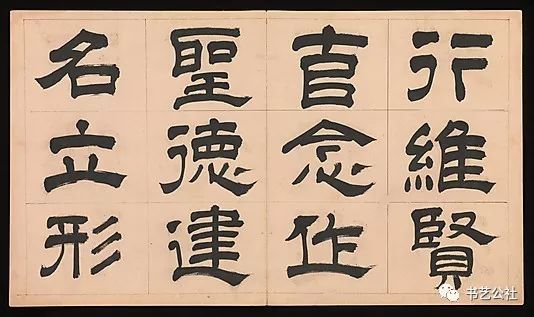 行維賢
克念作
聖德建
名立形
书艺公社